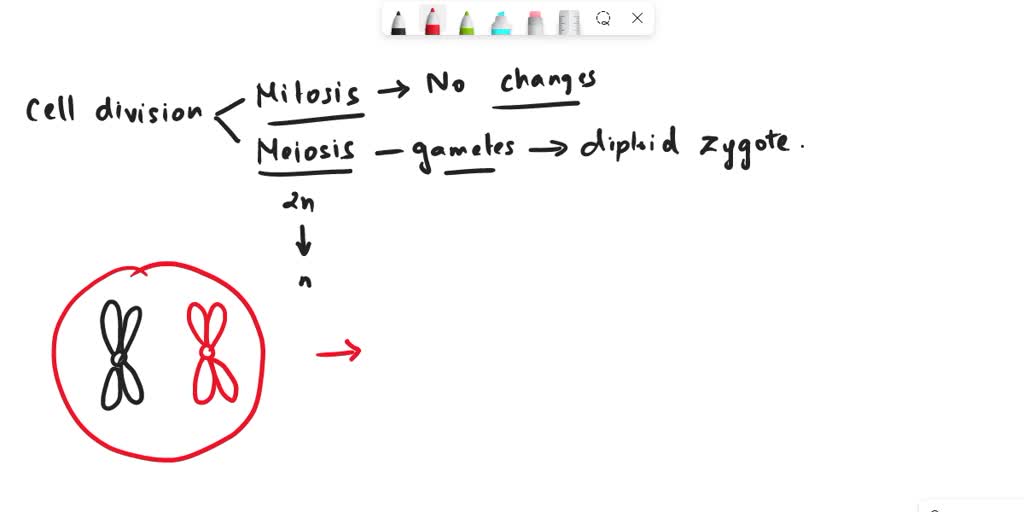 Cell division < Mitosis → No changes
Meiosis — gametes → diploid zygote.
2n
↓
n
→